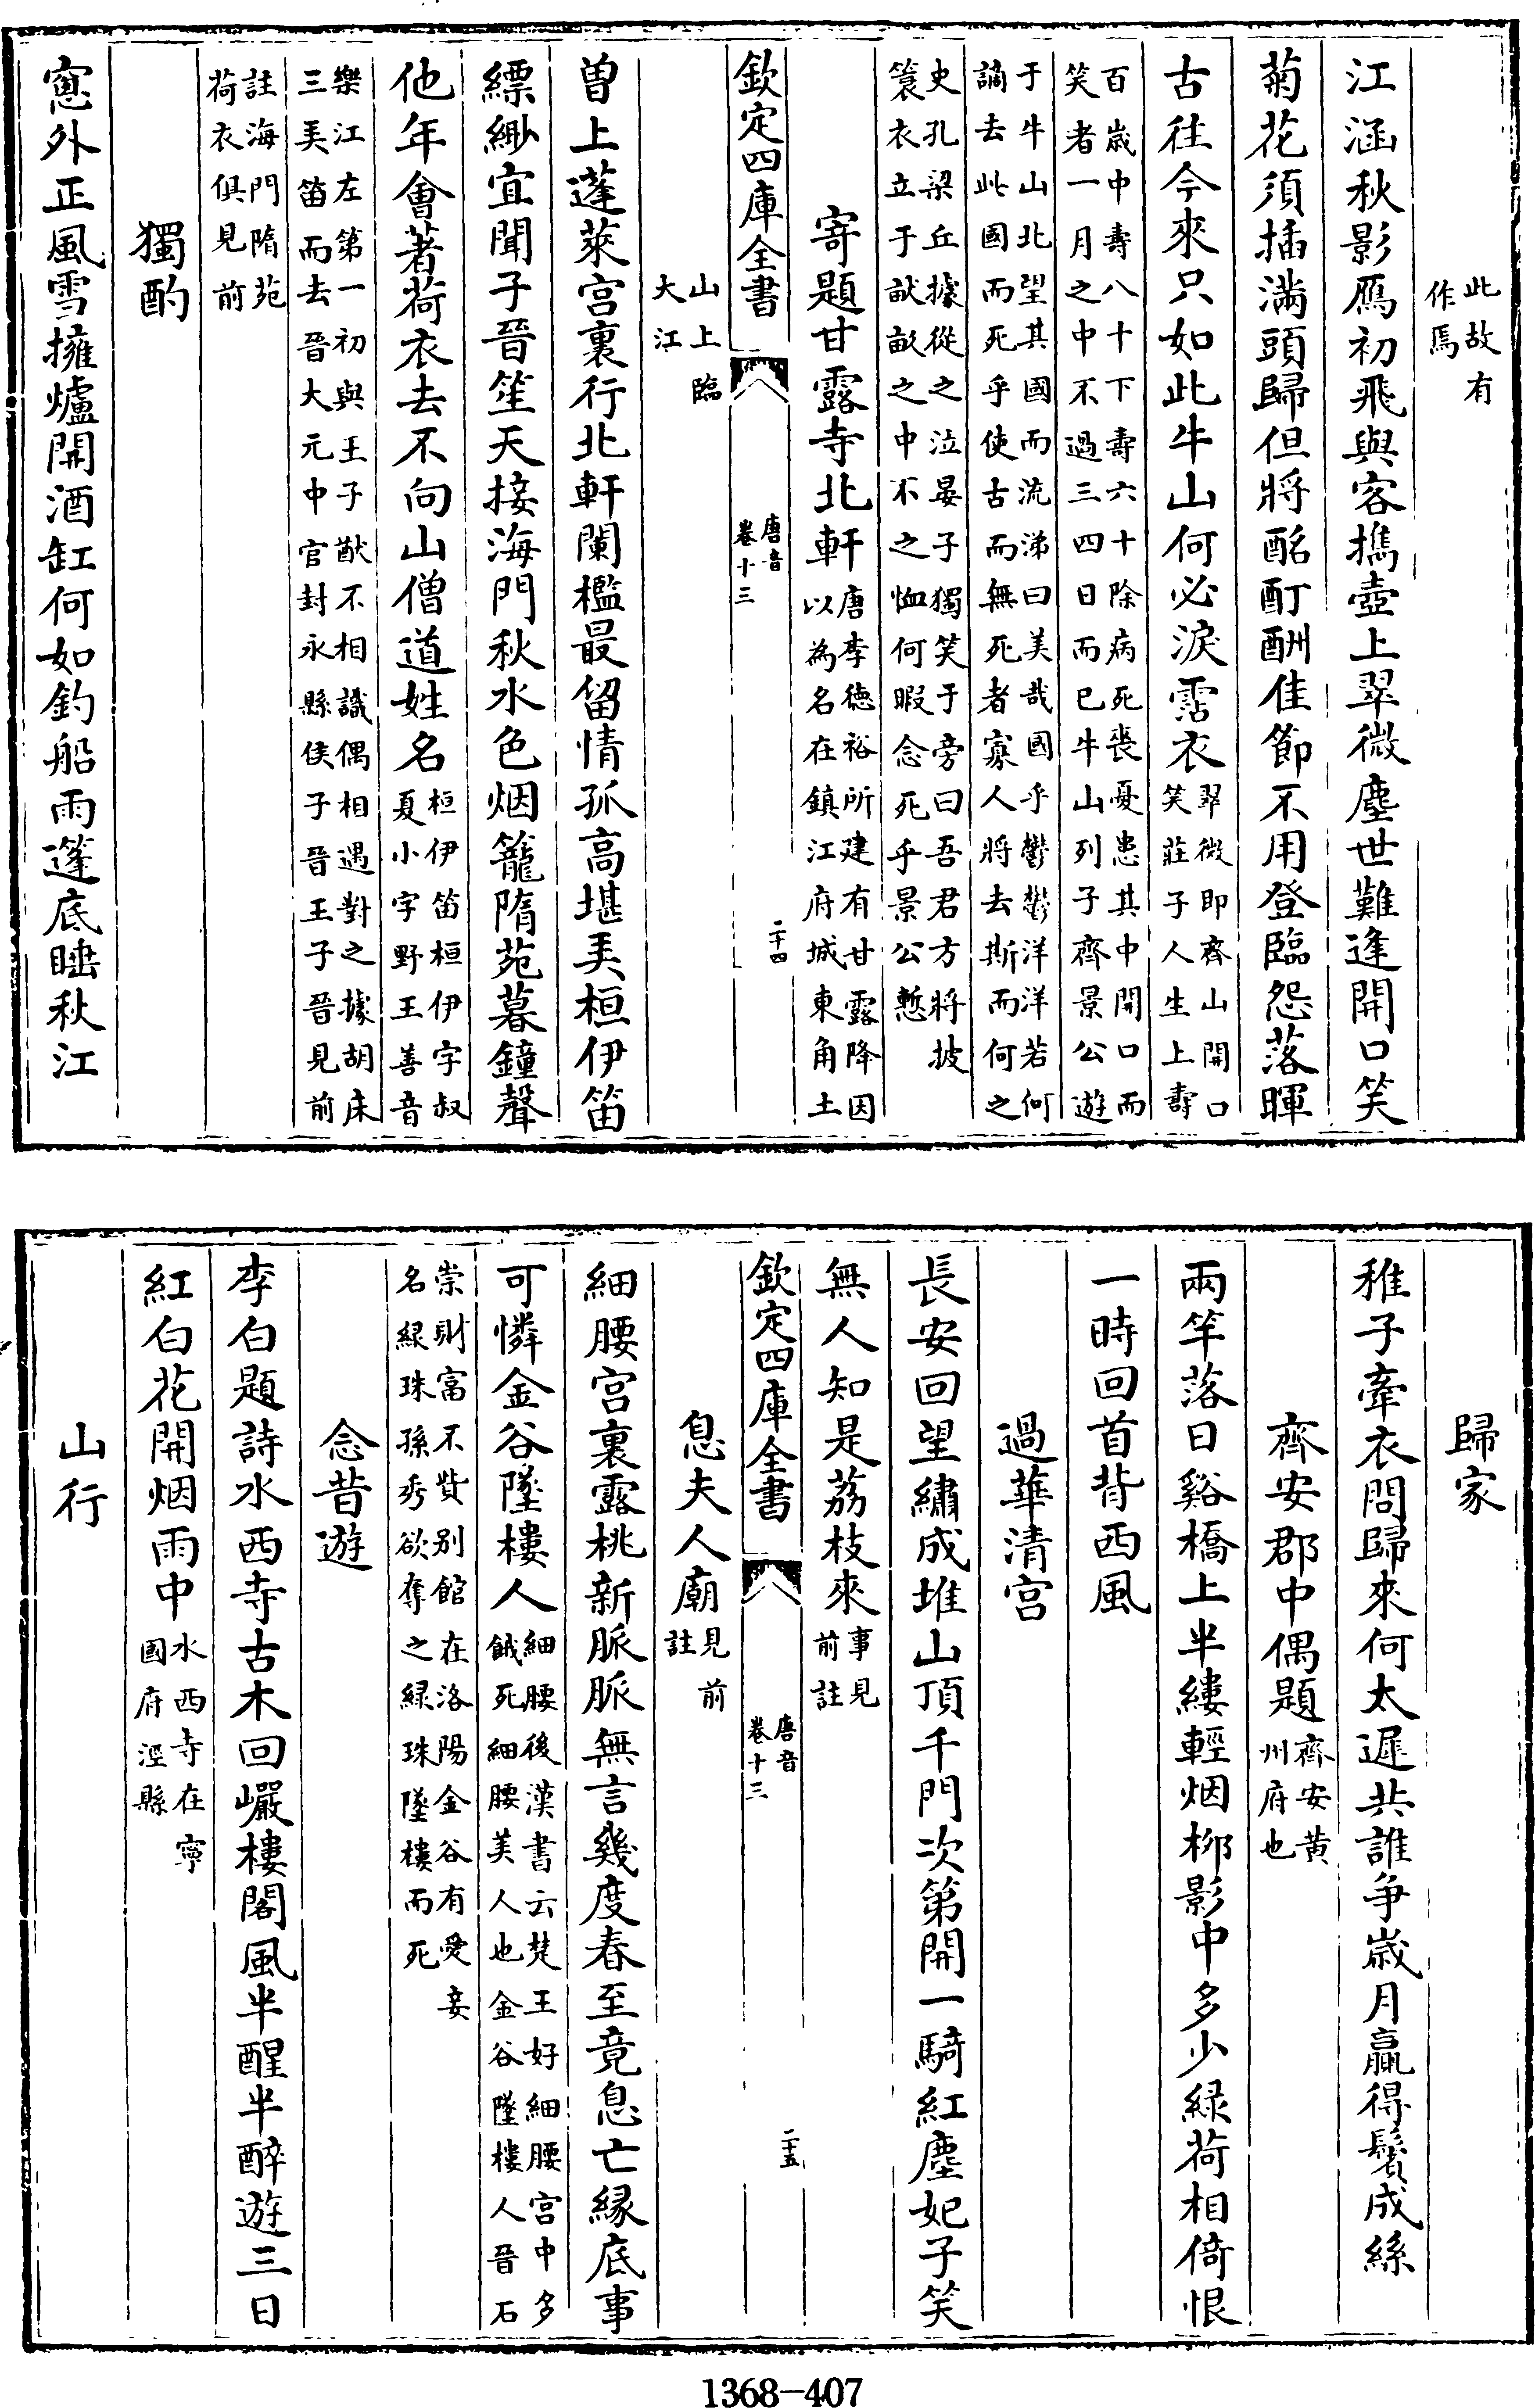 此故有
作焉
江涵秋影鴈初飛與客攜壺上翠微塵世難逢開口笑
菊花須插滿頭歸但將酩酊酬佳節不用登臨怨落暉
古徃今來只如此牛山何必淚霑衣
翠微即齊山開口
笑莊子人生上壽
百歲中壽八十下壽六十除病死喪憂患其中開口而
笑者一月之中不過三四日而已牛山列子齊景公遊
于牛山北望其國而流涕曰美哉國乎鬱鬱洋洋若何
謫去此國而死乎使古而無死者寡人將去斯而何之
史孔梁丘據從之泣晏子獨笑于旁曰吾君方將披
簑衣立于畎畝之中不之恤何暇念死乎景公慙
寄題甘露寺北軒
唐李德裕所建有甘露降因
以為名在鎮江府城東角土
欽定四庫全書
唐音
卷十三
二十四
山上臨
大江
曾上蓬萊宫裏行北軒闌檻最留情孤高堪美桓伊笛
縹緲宜聞子晉笙天接海門秋水色烟籠隋苑暮鐘聲
他年會著荷衣去不向山僧道姓名
桓伊笛桓伊字叔
夏小字野王善音
樂江左第一初與王子猷不相識偶相遇對之據胡床
三美笛而去晉大元中官封永縣侯子晉王子晉見前
註海門隋苑
荷衣俱見前
獨酌
窓外正風雪擁爐開酒缸何如釣船雨蓬底睡秋江
歸家
稚子牽衣問歸來何太遲共誰爭歲月贏得鬢成絲
齊安郡中偶題
齊安黄
州府也
兩竿落日谿橋上半縷輕烟柳影中多少緑荷相倚恨
一時回首背西風
過華清宫
長安回望繡成堆山頂千門次第開一騎紅塵妃子笑
無人知是荔枝來
事見
前註
欽定四庫全書
唐音
卷十三
二十五
息夫人廟
見前
註
細腰宫裏露桃新脈脈無言幾度春至竟息亡緣底事
可憐金谷墜樓人
細腰後漢書云楚王好細腰宫中多
餓死細腰美人也金谷墜樓人晉石
崇財富不貲别館在洛陽金谷有愛妾
名緑珠孫秀欲奪之緑珠墜樓而死
念昔遊
李白題詩水西寺古木回巖樓閣風半醒半醉遊三日
紅白花開烟雨中
水西寺在寧
國府涇縣
山行
1368-407